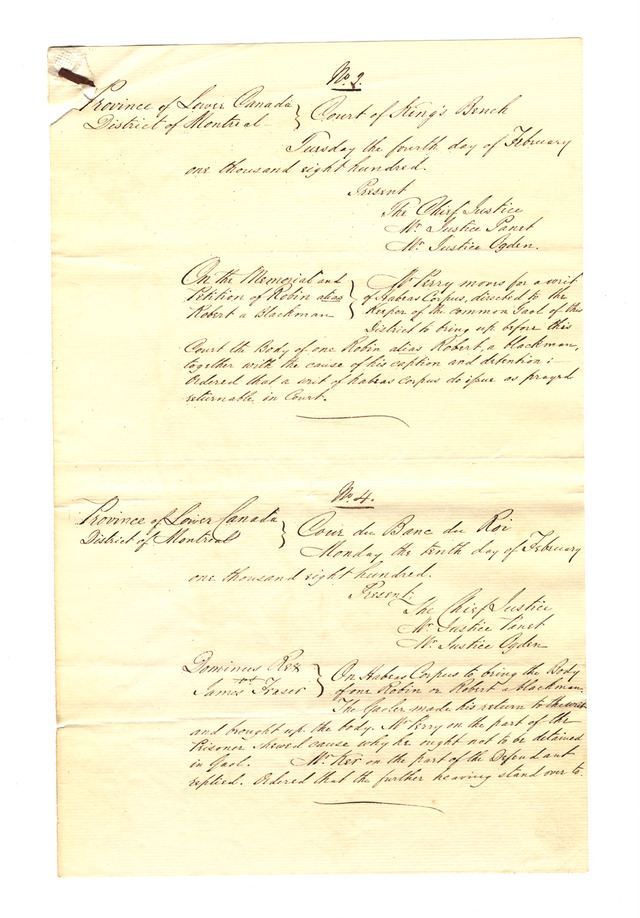 No. 2.
Province of Lower Canada } Court of King's Bench
District of Montreal
Tuesday the fourth day of February
one thousand eight hundred.
Present
The Chief Justice
Mr. Justice Panet
Mr. Justice Ogden.
On the Memorial and } Mr Perry moves for a writ
Petition of Robin alias of Habeas Corpus, directed to the
Robert a Blackman Keeper of the common Gaol of this
District to bring up before this
Court the Body of one Robin alias Robert, a blackman,
together with the cause of his caption and detention:
Ordered that a writ of habeas corpus do issue as prayed
returnable in Court.
No. 4.
Province of Lower Canada } Cour du Banc du Roi
District of Montreal
Monday the tenth day of February
one thousand eight hundred.
Present:
The Chief Justice
Mr Justice Penet
Mr. Justice Ogden
Dominus Rex } On Habeas Corpus to bring the Body
James Fraser of one Robin or Robert a blackman.
The Gaoler made his return to the writ
and brought up the body. Mr Perry on the part of the
Prisoner shewed cause why he ought not to be detained
in Gaol. Mr Ker on the part of the Defendant
replied. Ordered that the further hearing stand over to